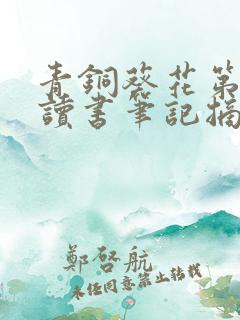 青銅葵花第
讀書筆記摘
鄭啓航
未經同意禁止轉載